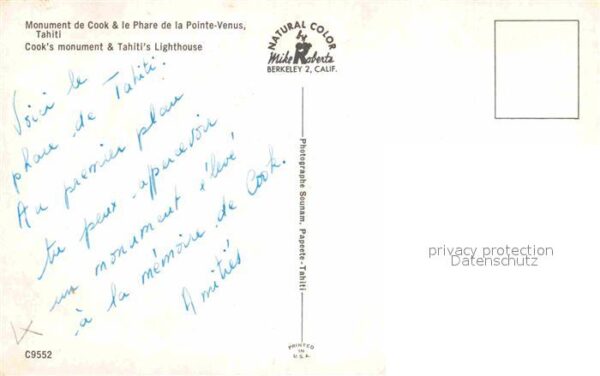 Monument de Cook & le Phare de la Pointe-Venus,
Tahiti
Cook's monument & Tahiti's Lighthouse
NATURAL COLOR
by
Mike Roberts
BERKELEY 2, CALIF.
Voici le
phare de Tahiti.
Au premier plan
tu peux appercevoir
un monument élevé
à la mémoire de Cook.
Amitiés
Photographe Sounam, Papeete-Tahiti
privacy protection
Datenschutz
C9552
PRINTED
IN
U.S.A.